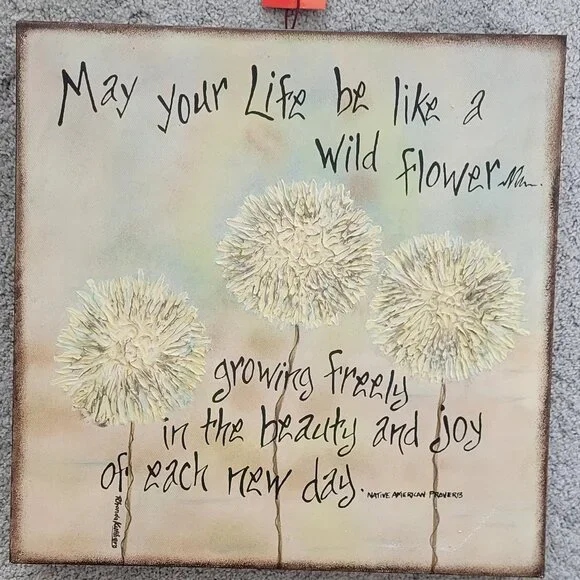 May your Life be like a
wild flower
growing freely
in the beauty and joy
of each new day.
NATIVE AMERICAN PROVERB